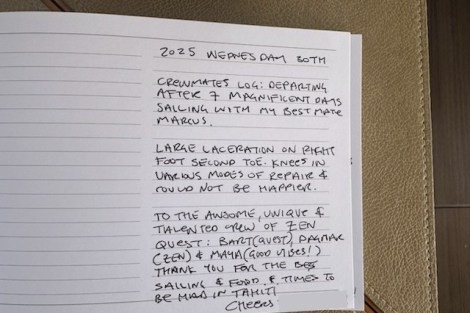 2025 WEDNESDAY 30TH
CREWMATES LOG: DEPARTING
AFTER 7 MAGNIFICENT DAYS
SAILING WITH MY BEST MATE
MARCUS.
LARGE LACERATION ON RIGHT
FOOT SECOND TOE. KNEES IN
VARIOUS MODES OF REPAIR &
COULD NOT BE HAPPIER.
TO THE AWSOME, UNIQUE &
TALENTED CREW OF ZEN
QUEST: BART(QUEST), DAGMAR
(ZEN) & MAYA(GOOD VIBES!)
THANK YOU FOR THE
SAILING & FOOD & TIMES TO
BE HAD IN TAHITI
CHEERS